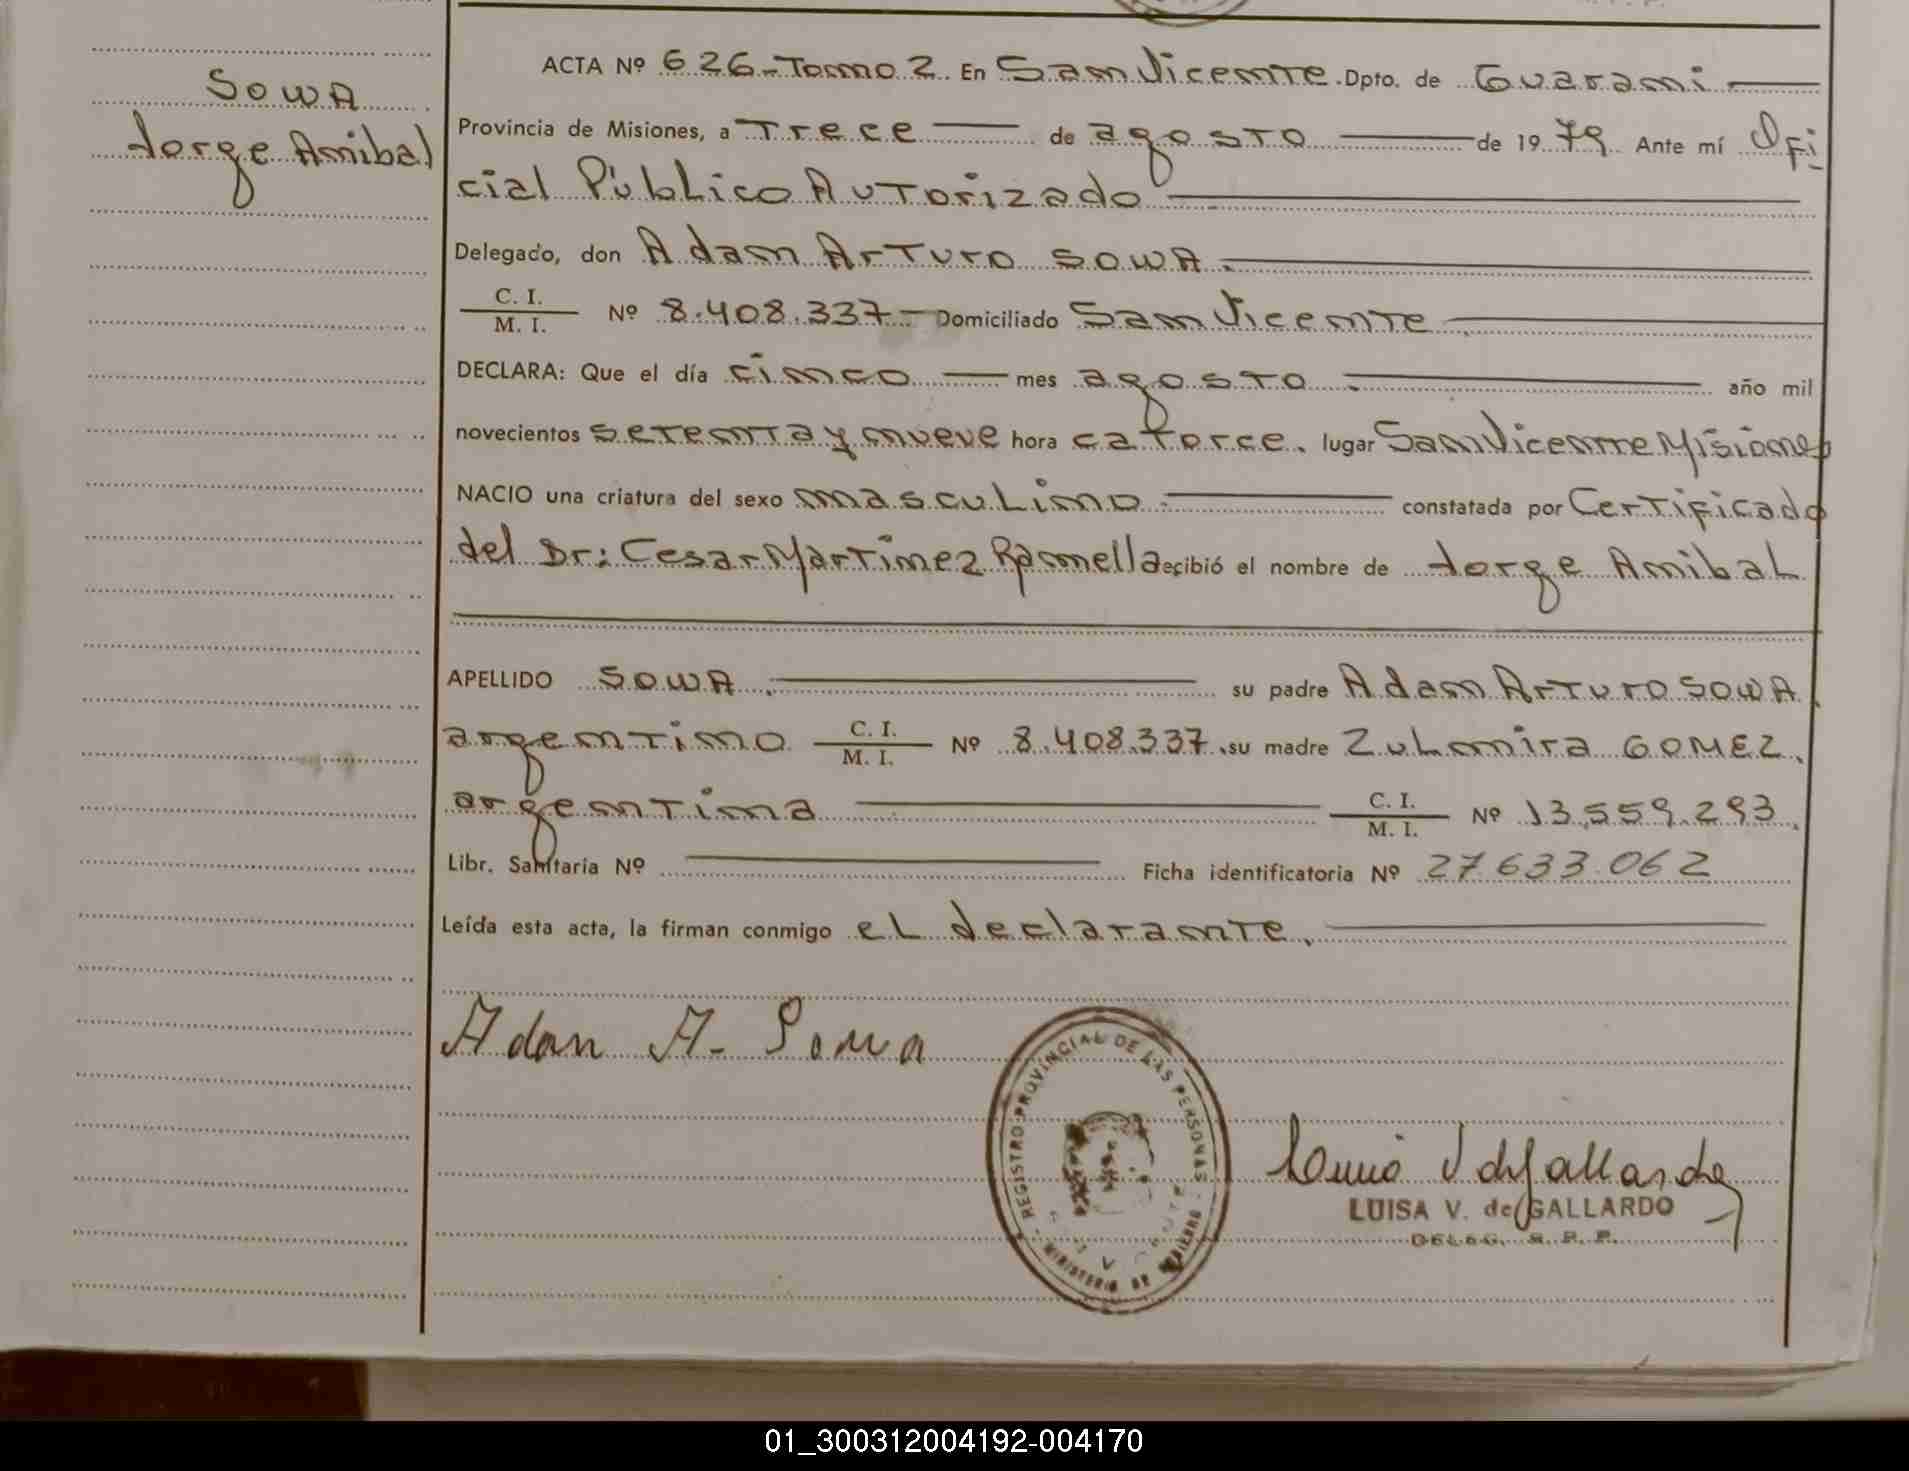 SOWA
Jorge Anibal
ACTA Nº 626-Tomo 2. En San Vicente. Dpto. de Guarani
Provincia de Misiones, a Trece de agosto de 1979 Ante mí Ofi
cial Público Autorizado
Delegado, don Adam Arturo SOWA.
C. I.
M. I. Nº 8.408.337- Domiciliado San Vicente
DECLARA: Que el día cinco mes agosto. año mil
novecientos setenta y nueve hora catorce. lugar San Vicente Misiones
NACIO una criatura del sexo masculino. constatada por Certificado
del Dr: Cesar Martinez Ramella ecibió el nombre de Jorge Anibal
APELLIDO SOWA. su padre Adam Arturo SOWA
argentino C. I. M. I. Nº 8.408.337. su madre Zulmira GOMEZ.
argentina C. I. M. I. Nº 13.559.293.
Libr. Sanitaria Nº Ficha identificatoria Nº 27633.062
Leída esta acta, la firman conmigo el declarante.
Adan A. Sowa
REGISTRO PROVINCIAL DE LAS PERSONAS
MINISTERIO DE GOBIERNO
LUISA V. de GALLARDO
DELEG. R. P. P.
01_300312004192-004170